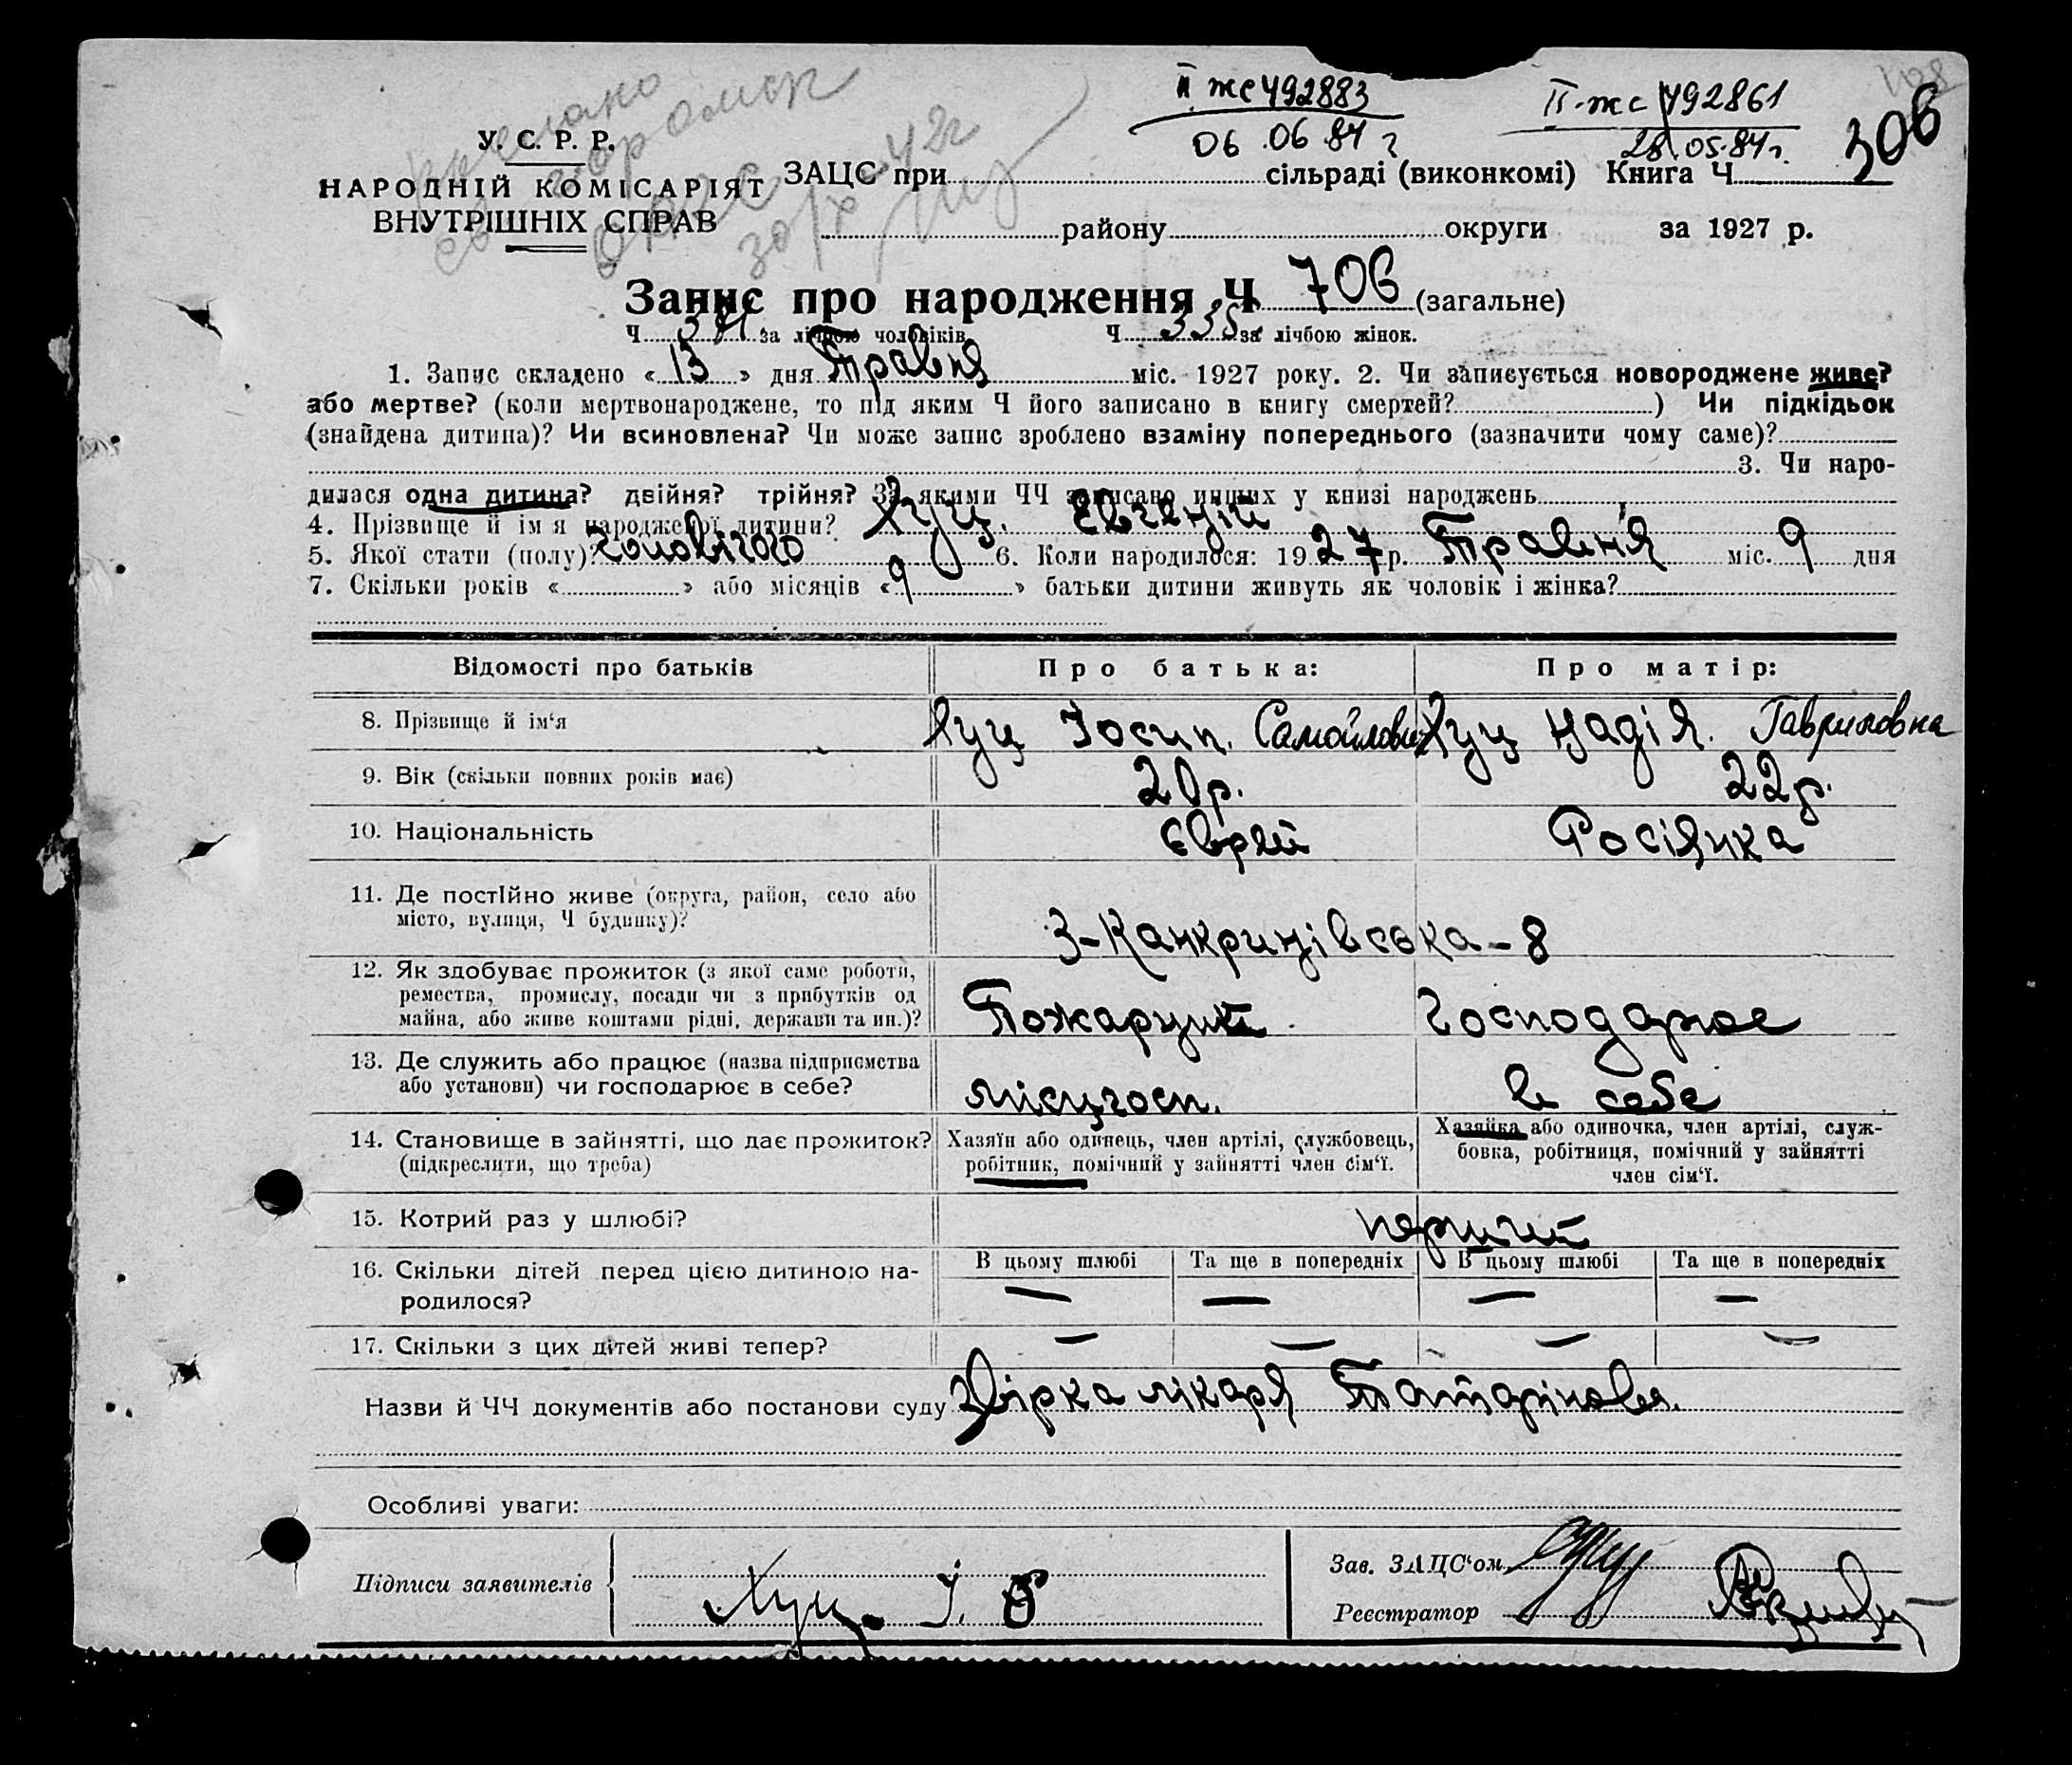 II жс 492883
06.06.84 г
II-жс 492861
28.05.84 г.
306
У. С. Р. Р.
НАРОДНІЙ КОМІСАРІЯТ
ВНУТРІШНІХ СПРАВ
ЗАЦС при сільраді (виконкомі) Книга Ч
району округи за 1927 р.
Запис про народження Ч 706 (загальне)
Ч за лічбою чоловіків Ч 335 за лічбою жінок.
1. Запис складено « 13 » дня Травня міс. 1927 року. 2. Чи записується новороджене живе?
або мертве? (коли мертвонароджене, то під яким Ч його записано в книгу смертей? ) Чи підкідьок
(знайдена дитина)? Чи всиновлена? Чи може запис зроблено взаміну попереднього (зазначити чому саме)?
3. Чи наро-
дилася одна дитина? двійня? трійня? За якими ЧЧ записано инших у книзі народжень
4. Прізвище й ім'я народженої дитини? Луц. Євгеній
5. Якої стати (полу)? чоловічого 6. Коли народилося: 1927 р. Травня міс. 9 дня
7. Скільки років « » або місяців « 9 » батьки дитини живуть як чоловік і жінка?
Відомості про батьків Про батька: Про матір:
8. Прізвище й ім'я Луц Йосип. Самойлович Луц Надія. Гавриловна
9. Вік (скільки повних років має) 20 р. 22 р.
10. Національність Єврей Росіянка
11. Де постійно живе (округа, район, село або
місто, вулиця, Ч будинку)? 3-Канкринівська-8
12. Як здобуває прожиток (з якої саме роботи,
ремества, промислу, посади чи з прибутків од
майна, або живе коштами рідні, держави та ин.)? Пожарний Господарює
13. Де служить або працює (назва підприємства
або установи) чи господарює в себе? місцгосп. в себе
14. Становище в зайнятті, що дає прожиток?
(підкреслити, що треба)
Хазяїн або одинець, член артілі, службовець,
робітник, помічний у зайнятті член сім'ї.
Хазяйка або одиночка, член артілі, служ-
бовка, робітниця, помічний у зайнятті
член сім'ї.
15. Котрий раз у шлюбі? перший
16. Скільки дітей перед цією дитиною на-
родилося?
В цьому шлюбі Та ще в попередніх В цьому шлюбі Та ще в попередніх
— — — —
17. Скільки з цих дітей живі тепер? — — — —
Назви й ЧЧ документів або постанови суду Довірка лікаря Татарінова.
Особливі уваги:
Підписи заявителів Луц. Й. С
Зав. ЗАЦС'ом
Реєстратор